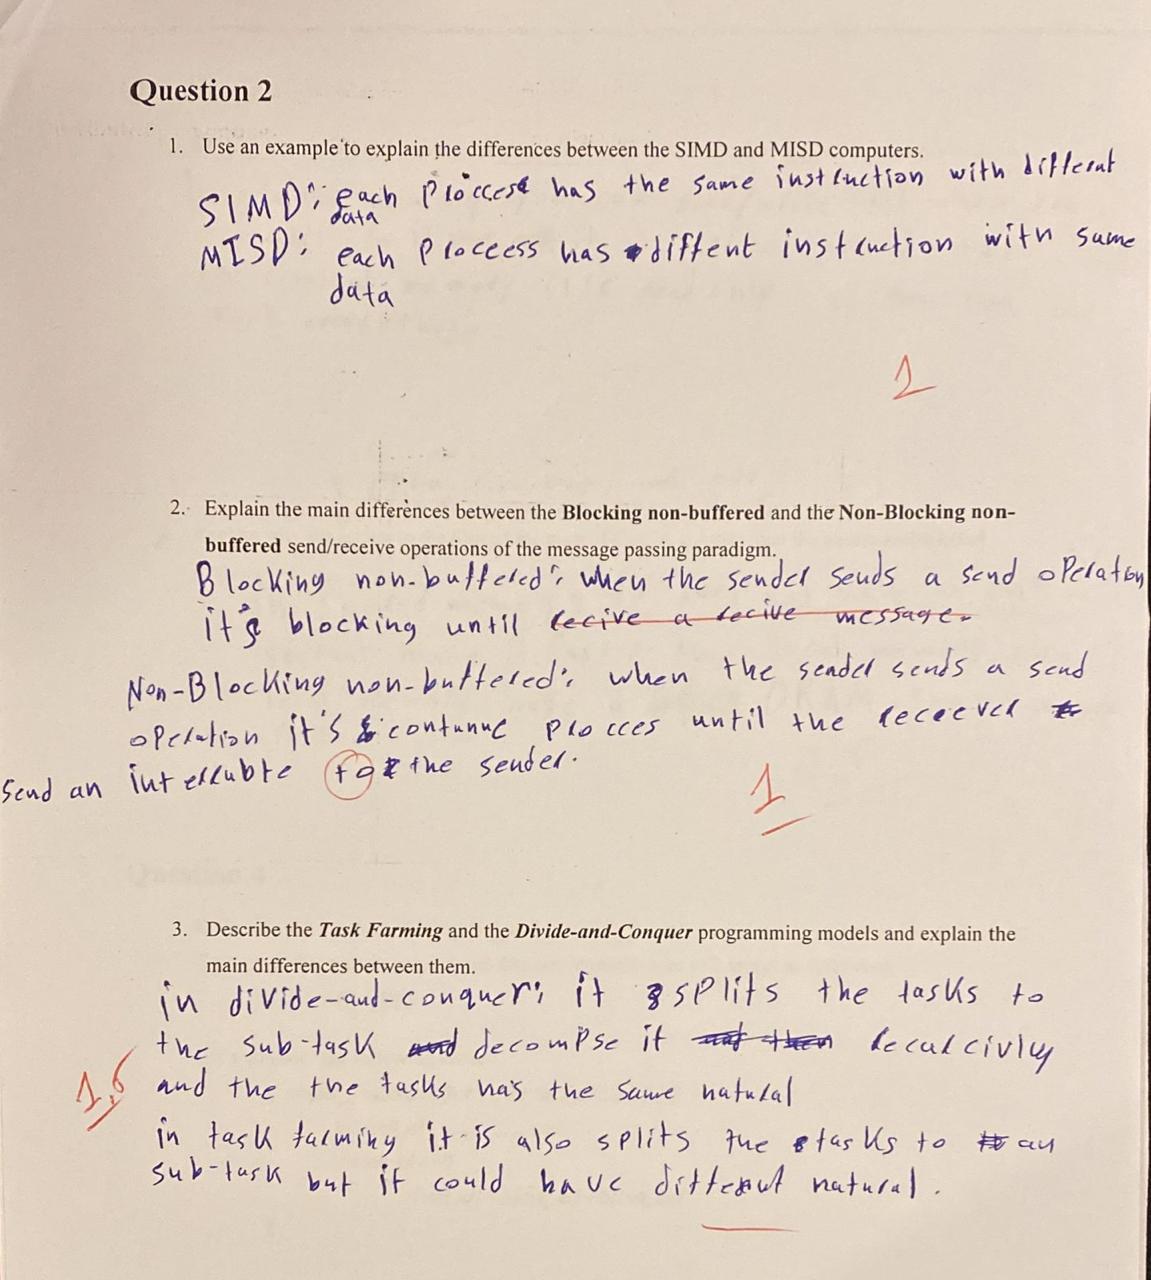 Question 2
1. Use an example to explain the differences between the SIMD and MISD computers.
SIMD: each Proccess has the same instruction with different
data
MISD: each Proccess has diffent instruction with same
data
2. Explain the main differences between the Blocking non-buffered and the Non-Blocking non-
buffered send/receive operations of the message passing paradigm.
Blocking non-buffered: when the sender sends a send operation
it's blocking until recive a recive message.
Non-Blocking non-buffered: when the sender sends a send
operation it's contunue procces until the receever
send an interrubte for the sender.
1
3. Describe the Task Farming and the Divide-and-Conquer programming models and explain the
main differences between them.
in divide-and-conquer: it splits the tasks to
the sub-task and decompse it recurcivly
and the the tasks has the same natural
in task farming it is also splits the tasks to an
sub-task but it could have different natural.